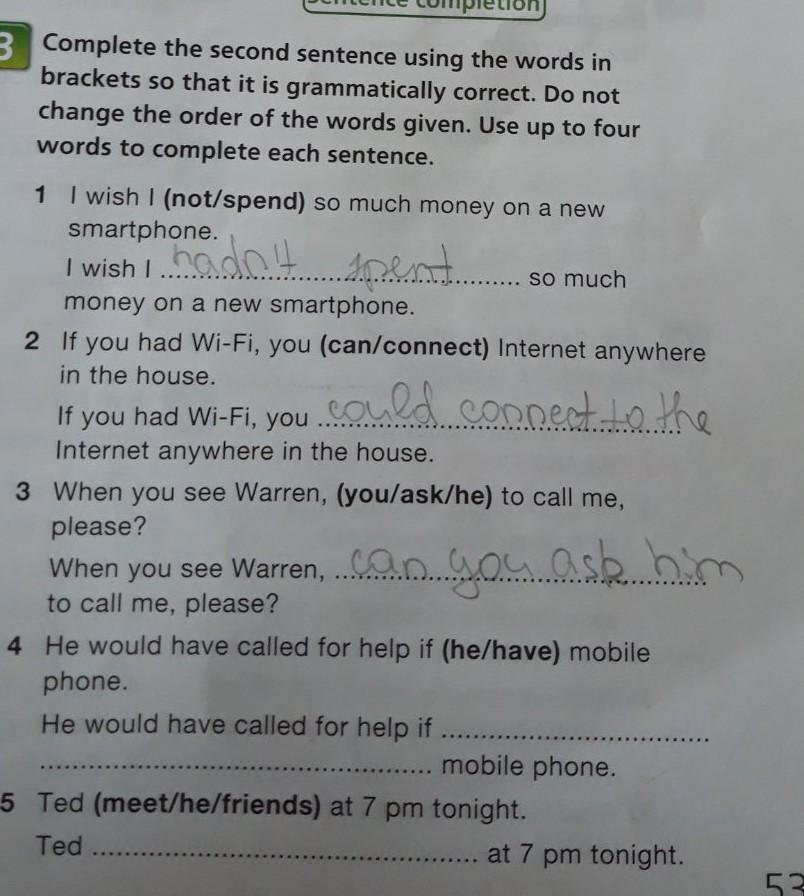 Sentence completion
3 Complete the second sentence using the words in
brackets so that it is grammatically correct. Do not
change the order of the words given. Use up to four
words to complete each sentence.
1 I wish I (not/spend) so much money on a new
smartphone.
I wish I hadn't spent so much
money on a new smartphone.
2 If you had Wi-Fi, you (can/connect) Internet anywhere
in the house.
If you had Wi-Fi, you could connect to the
Internet anywhere in the house.
3 When you see Warren, (you/ask/he) to call me,
please?
When you see Warren, can you ask him
to call me, please?
4 He would have called for help if (he/have) mobile
phone.
He would have called for help if ....................................
.................................................... mobile phone.
5 Ted (meet/he/friends) at 7 pm tonight.
Ted .................................................... at 7 pm tonight.
53